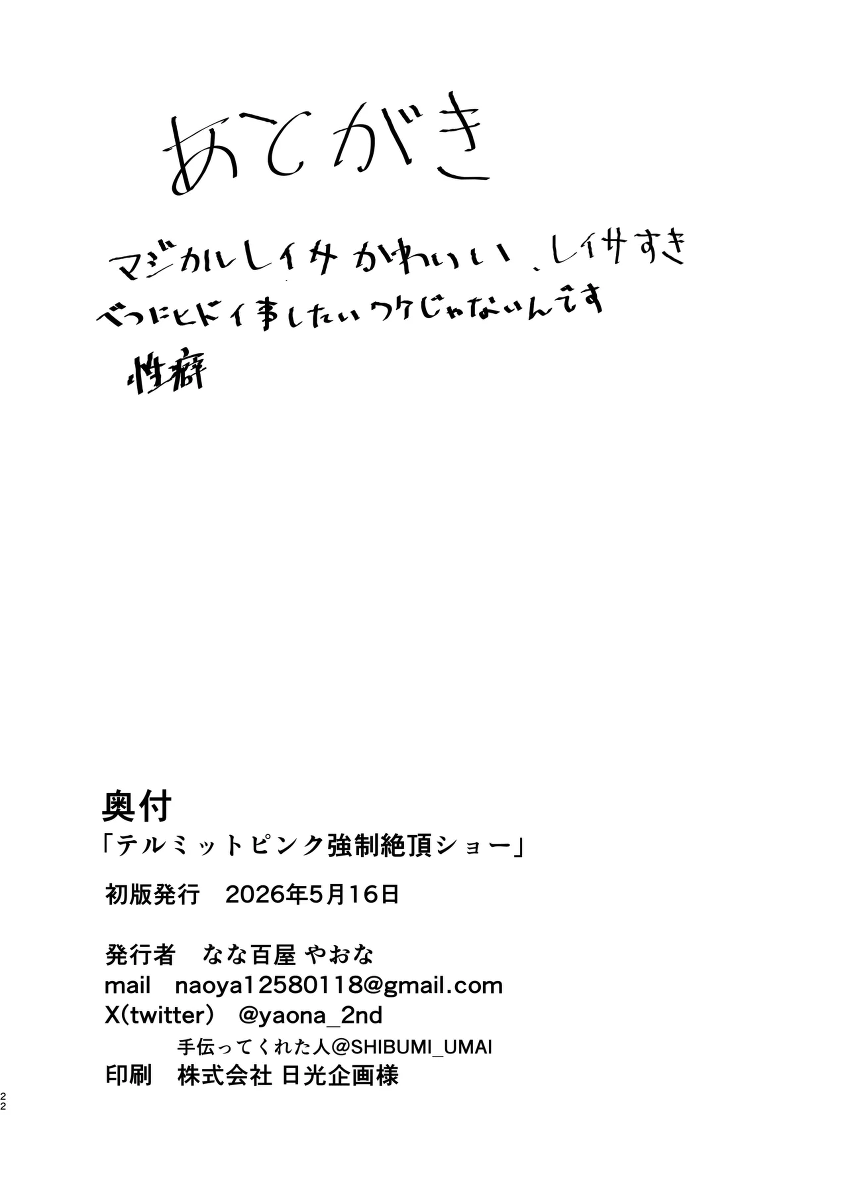 あとがき
マジカルレイサかわいい、レイサすき
べつにヒドイ事したいワケじゃないんです
性癖
奥付
「テルミットピンク強制絶頂ショー」
初版発行 2026年5月16日
発行者 なな百屋 やおな
mail naoya12580118@gmail.com
X(twitter) @yaona_2nd
手伝ってくれた人@SHIBUMI_UMAI
印刷 株式会社 日光企画様
22